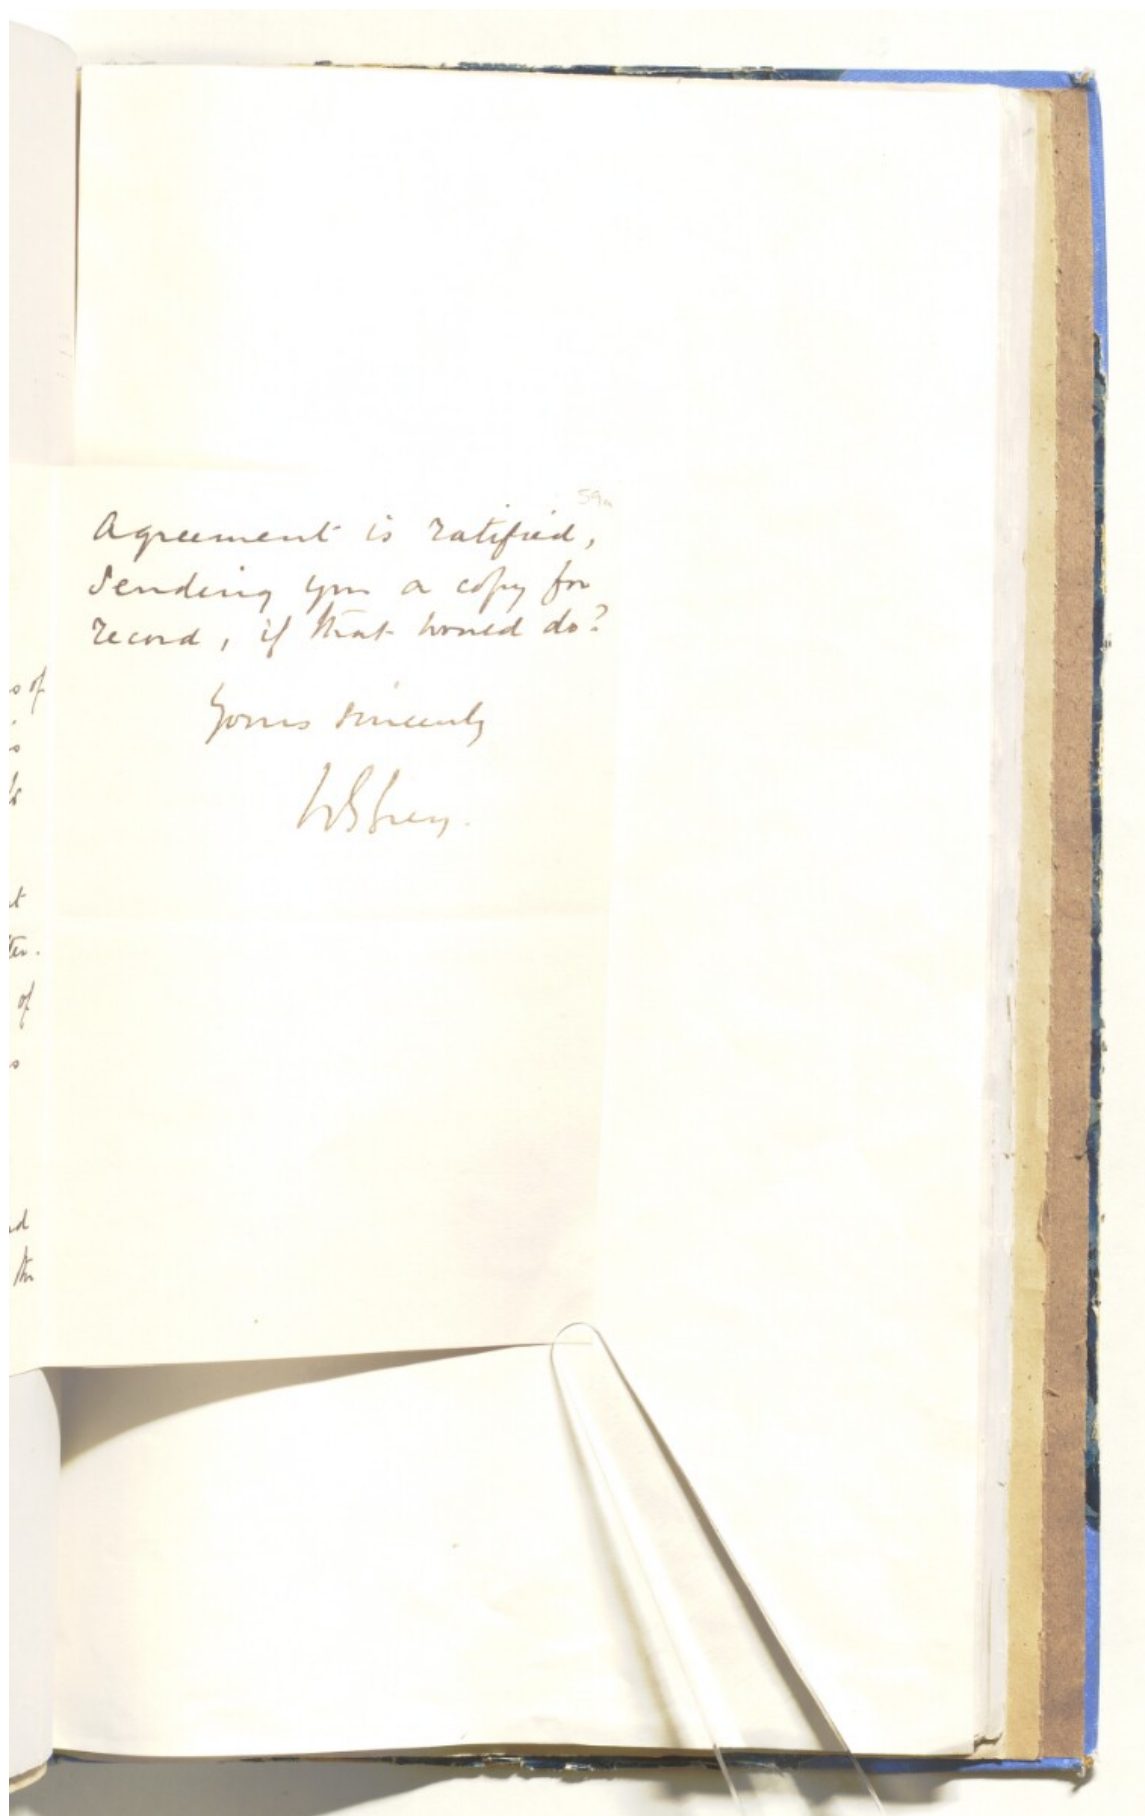 59a
Agreement is ratified,
Sending you a copy for
record, if that would do?
Yours sincerely
of
t
of
d
the